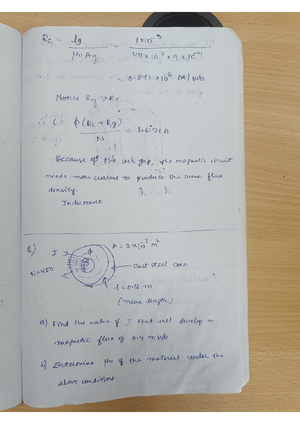 Rg = lg / μ0 Ag = 1×10⁻³ / 4π×10⁻⁷ × 9×10⁻⁴
= 8.842 ×10⁶ At/Wb
Notice Rg > Rc
i = φ(Rc + Rg) / N = 1.0071 A
Because of the air gap, the magnetic circuit
needs more current to produce the same flux
density.
Q)
I
A = 2×10⁻³ m²
N=400
Cast steel core
l = 0.16 m
(mean length)
a) Find the value of I that will develop a
magnetic flux of 0.4 mWb
b) Determine μr of the material under the
above conditions.